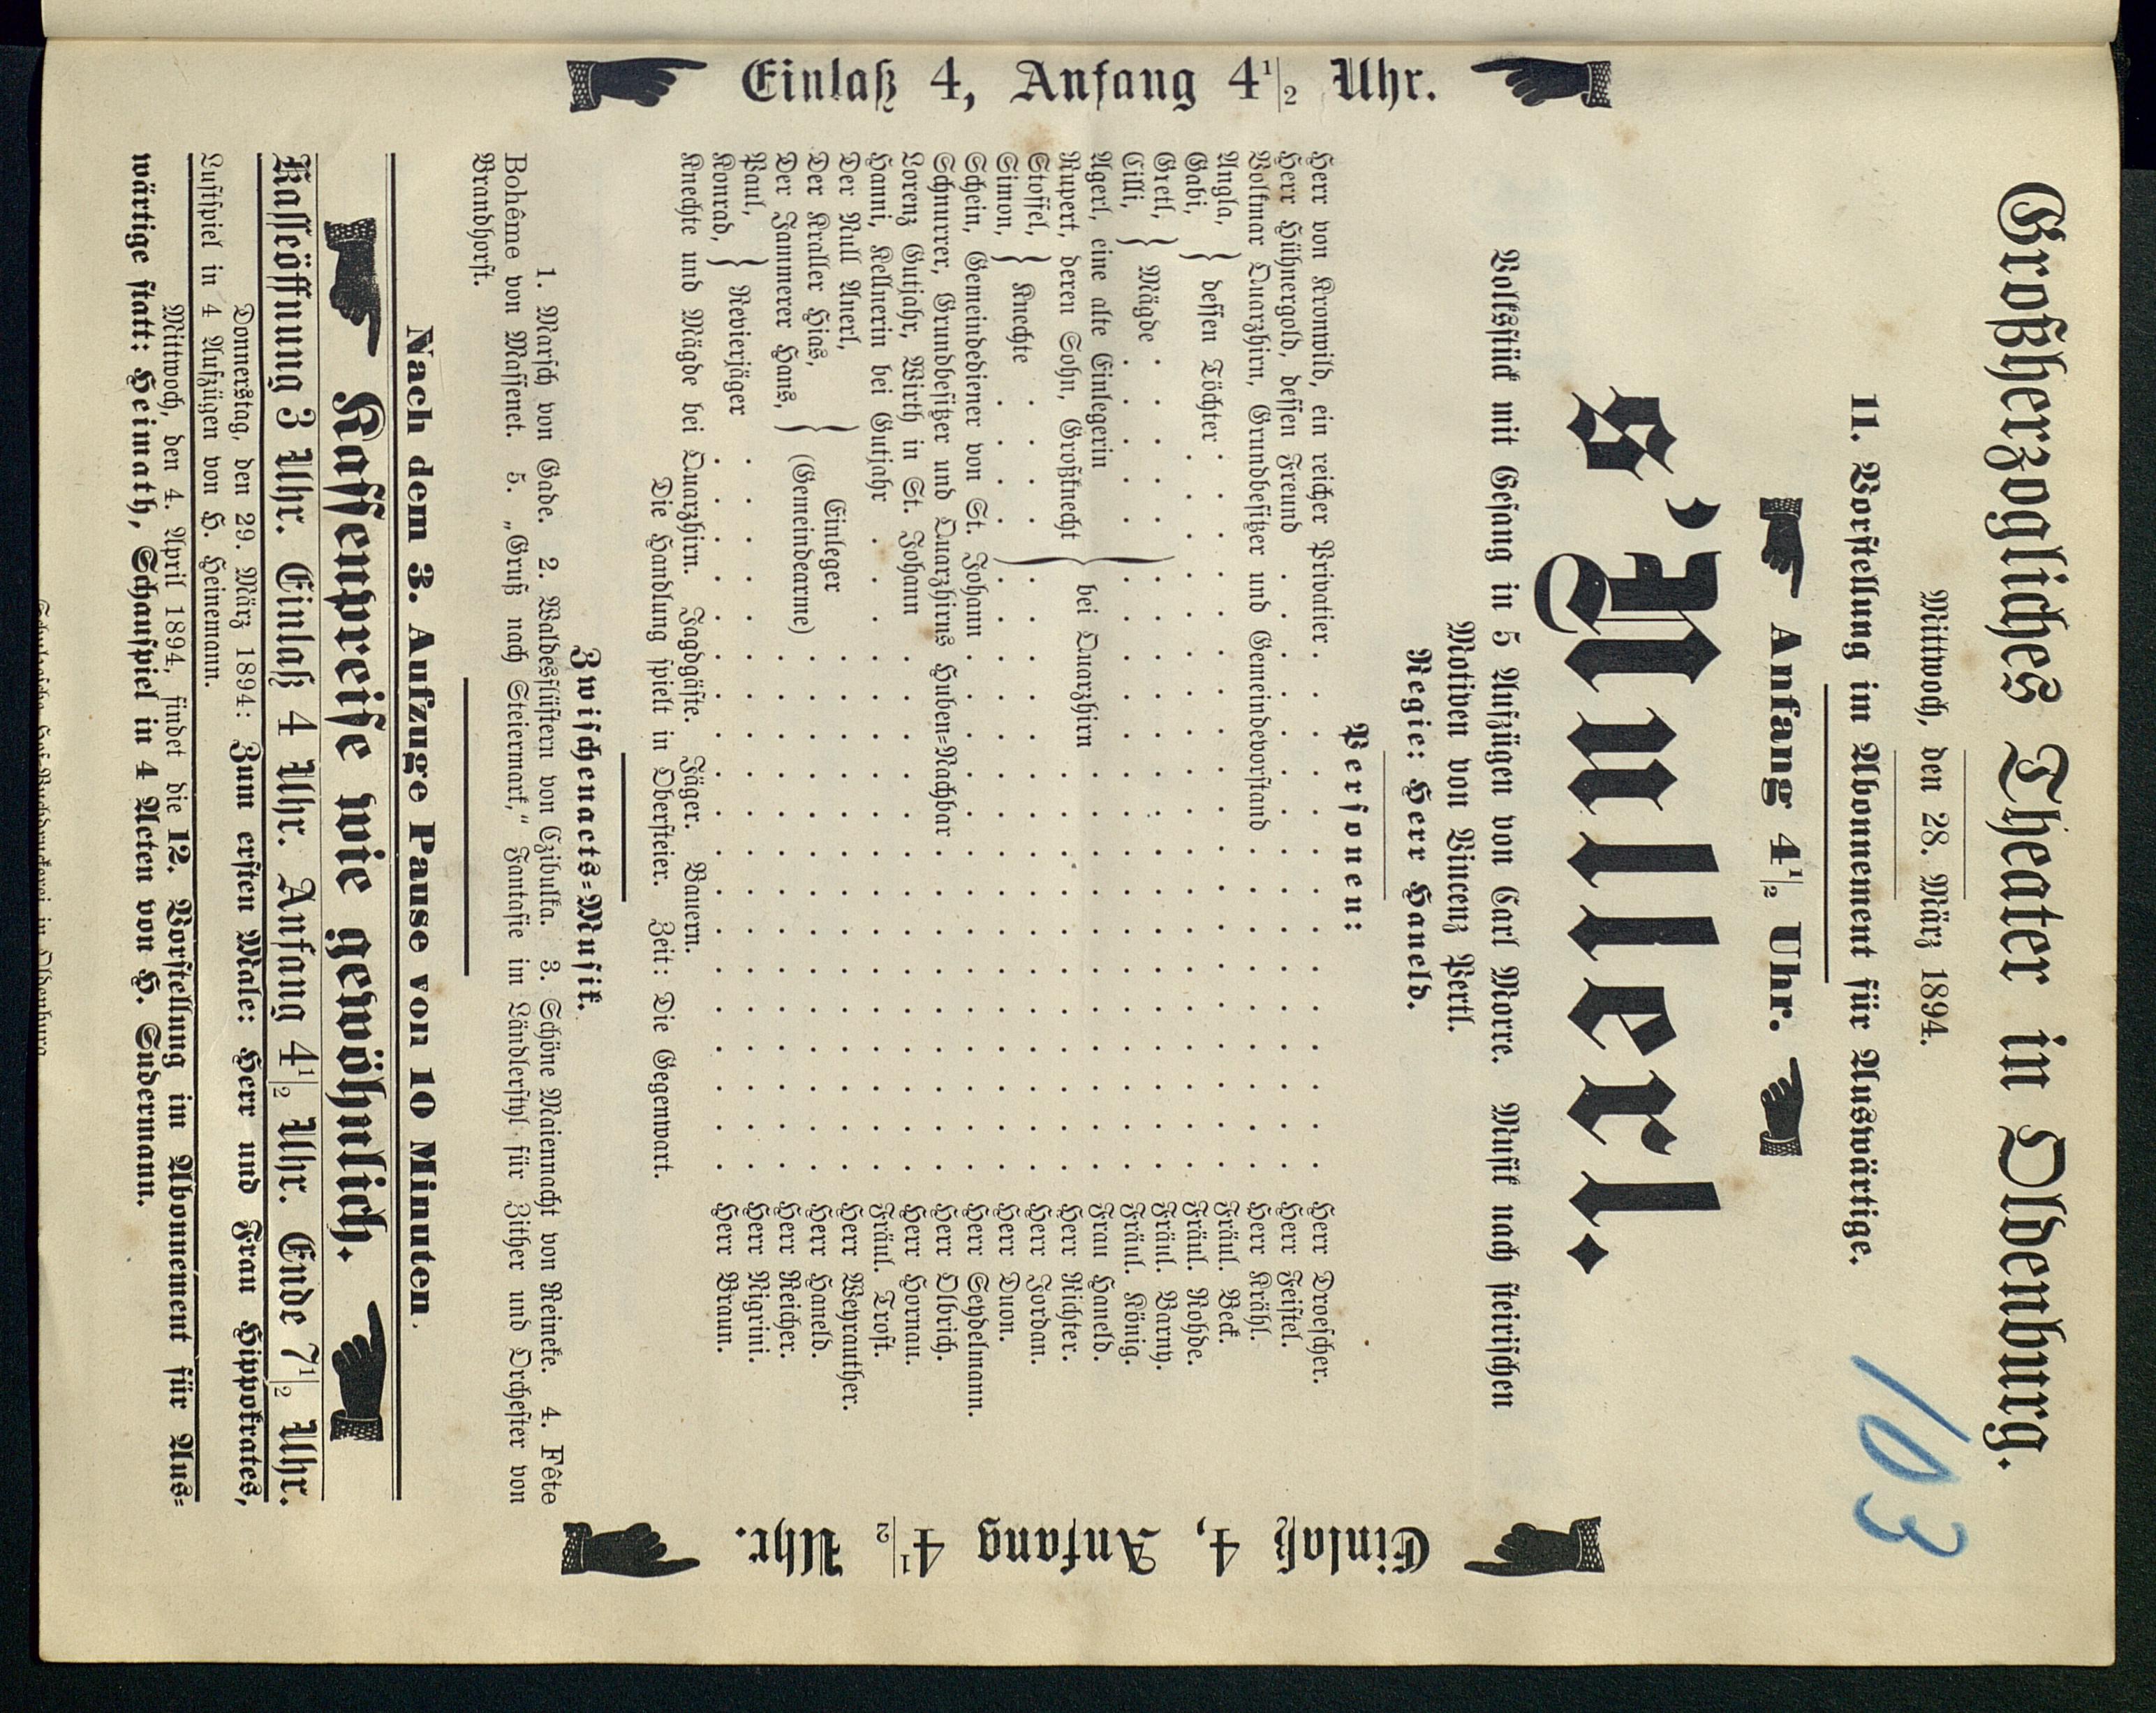 Großherzogliches Theater in Oldenburg.
Mittwoch, den 28. März 1894.
103
11. Vorstellung im Abonnement für Auswärtige.
Anfang 4½ Uhr.
s'Nullerl.
Volksstück mit Gesang in 5 Aufzügen von Carl Morre. Musik nach steirischen
Motiven von Vincenz Pertl.
Regie: Herr Haneld.
Personen:
Herr von Kronwild, ein reicher Privatier . . . Herr Droescher.
Herr Hühnergold, dessen Freund . . . Herr Feistel.
Volkmar Quarzhirn, Grundbesitzer und Gemeindevorstand . . . Herr Krähl.
Angla, } dessen Töchter . . . Fräul. Beck.
Gabi, . . . Fräul. Rohde.
Gretl, } Mägde . . . Fräul. Barny.
Cilli, . . . Fräul. König.
Agerl, eine alte Einlegerin } bei Quarzhirn . . . Frau Haneld.
Rupert, deren Sohn, Großknecht . . . Herr Richter.
Stoffel, } Knechte . . . Herr Jordan.
Simon, . . . Herr Duon.
Schein, Gemeindediener von St. Johann . . . Herr Seydelmann.
Schnurrer, Grundbesitzer und Quarzhirns Huben-Nachbar . . . Herr Olbrich.
Lorenz Gutjahr, Wirth in St. Johann . . . Herr Hornau.
Hanni, Kellnerin bei Gutjahr . . . Fräul. Trost.
Der Null Anerl, } Einleger . . . Herr Weyrauther.
Der Kraller Hias, (Gemeindearme) . . . Herr Haneld.
Der Jammerer Hans, . . . Herr Reicher.
Paul, } Revierjäger . . . Herr Nigrini.
Konrad, . . . Herr Braun.
Knechte und Mägde bei Quarzhirn. Jagdgäste. Jäger. Bauern.
Die Handlung spielt in Obersteier. Zeit: Die Gegenwart.
Zwischenacts-Musik.
1. Marsch von Gade. 2. Waldesflüstern von Czibulka. 3. Schöne Maiennacht von Reineke. 4. Fête
Bohême von Massenet. 5. „Gruß nach Steiermark," Fantasie im Ländlerstyl für Zither und Orchester von
Brandhorst.
Nach dem 3. Aufzuge Pause von 10 Minuten.
Kassenpreise wie gewöhnlich.
Kasseöffnung 3 Uhr. Einlaß 4 Uhr. Anfang 4½ Uhr. Ende 7½ Uhr.
Donnerstag, den 29. März 1894: Zum ersten Male: Herr und Frau Hippokrates,
Lustspiel in 4 Aufzügen von H. Heinemann.
Mittwoch, den 4. April 1894, findet die 12. Vorstellung im Abonnement für Aus-
wärtige statt: Heimath, Schauspiel in 4 Acten von H. Sudermann.
Einlaß 4, Anfang 4½ Uhr.
Einlaß 4, Anfang 4½ Uhr.